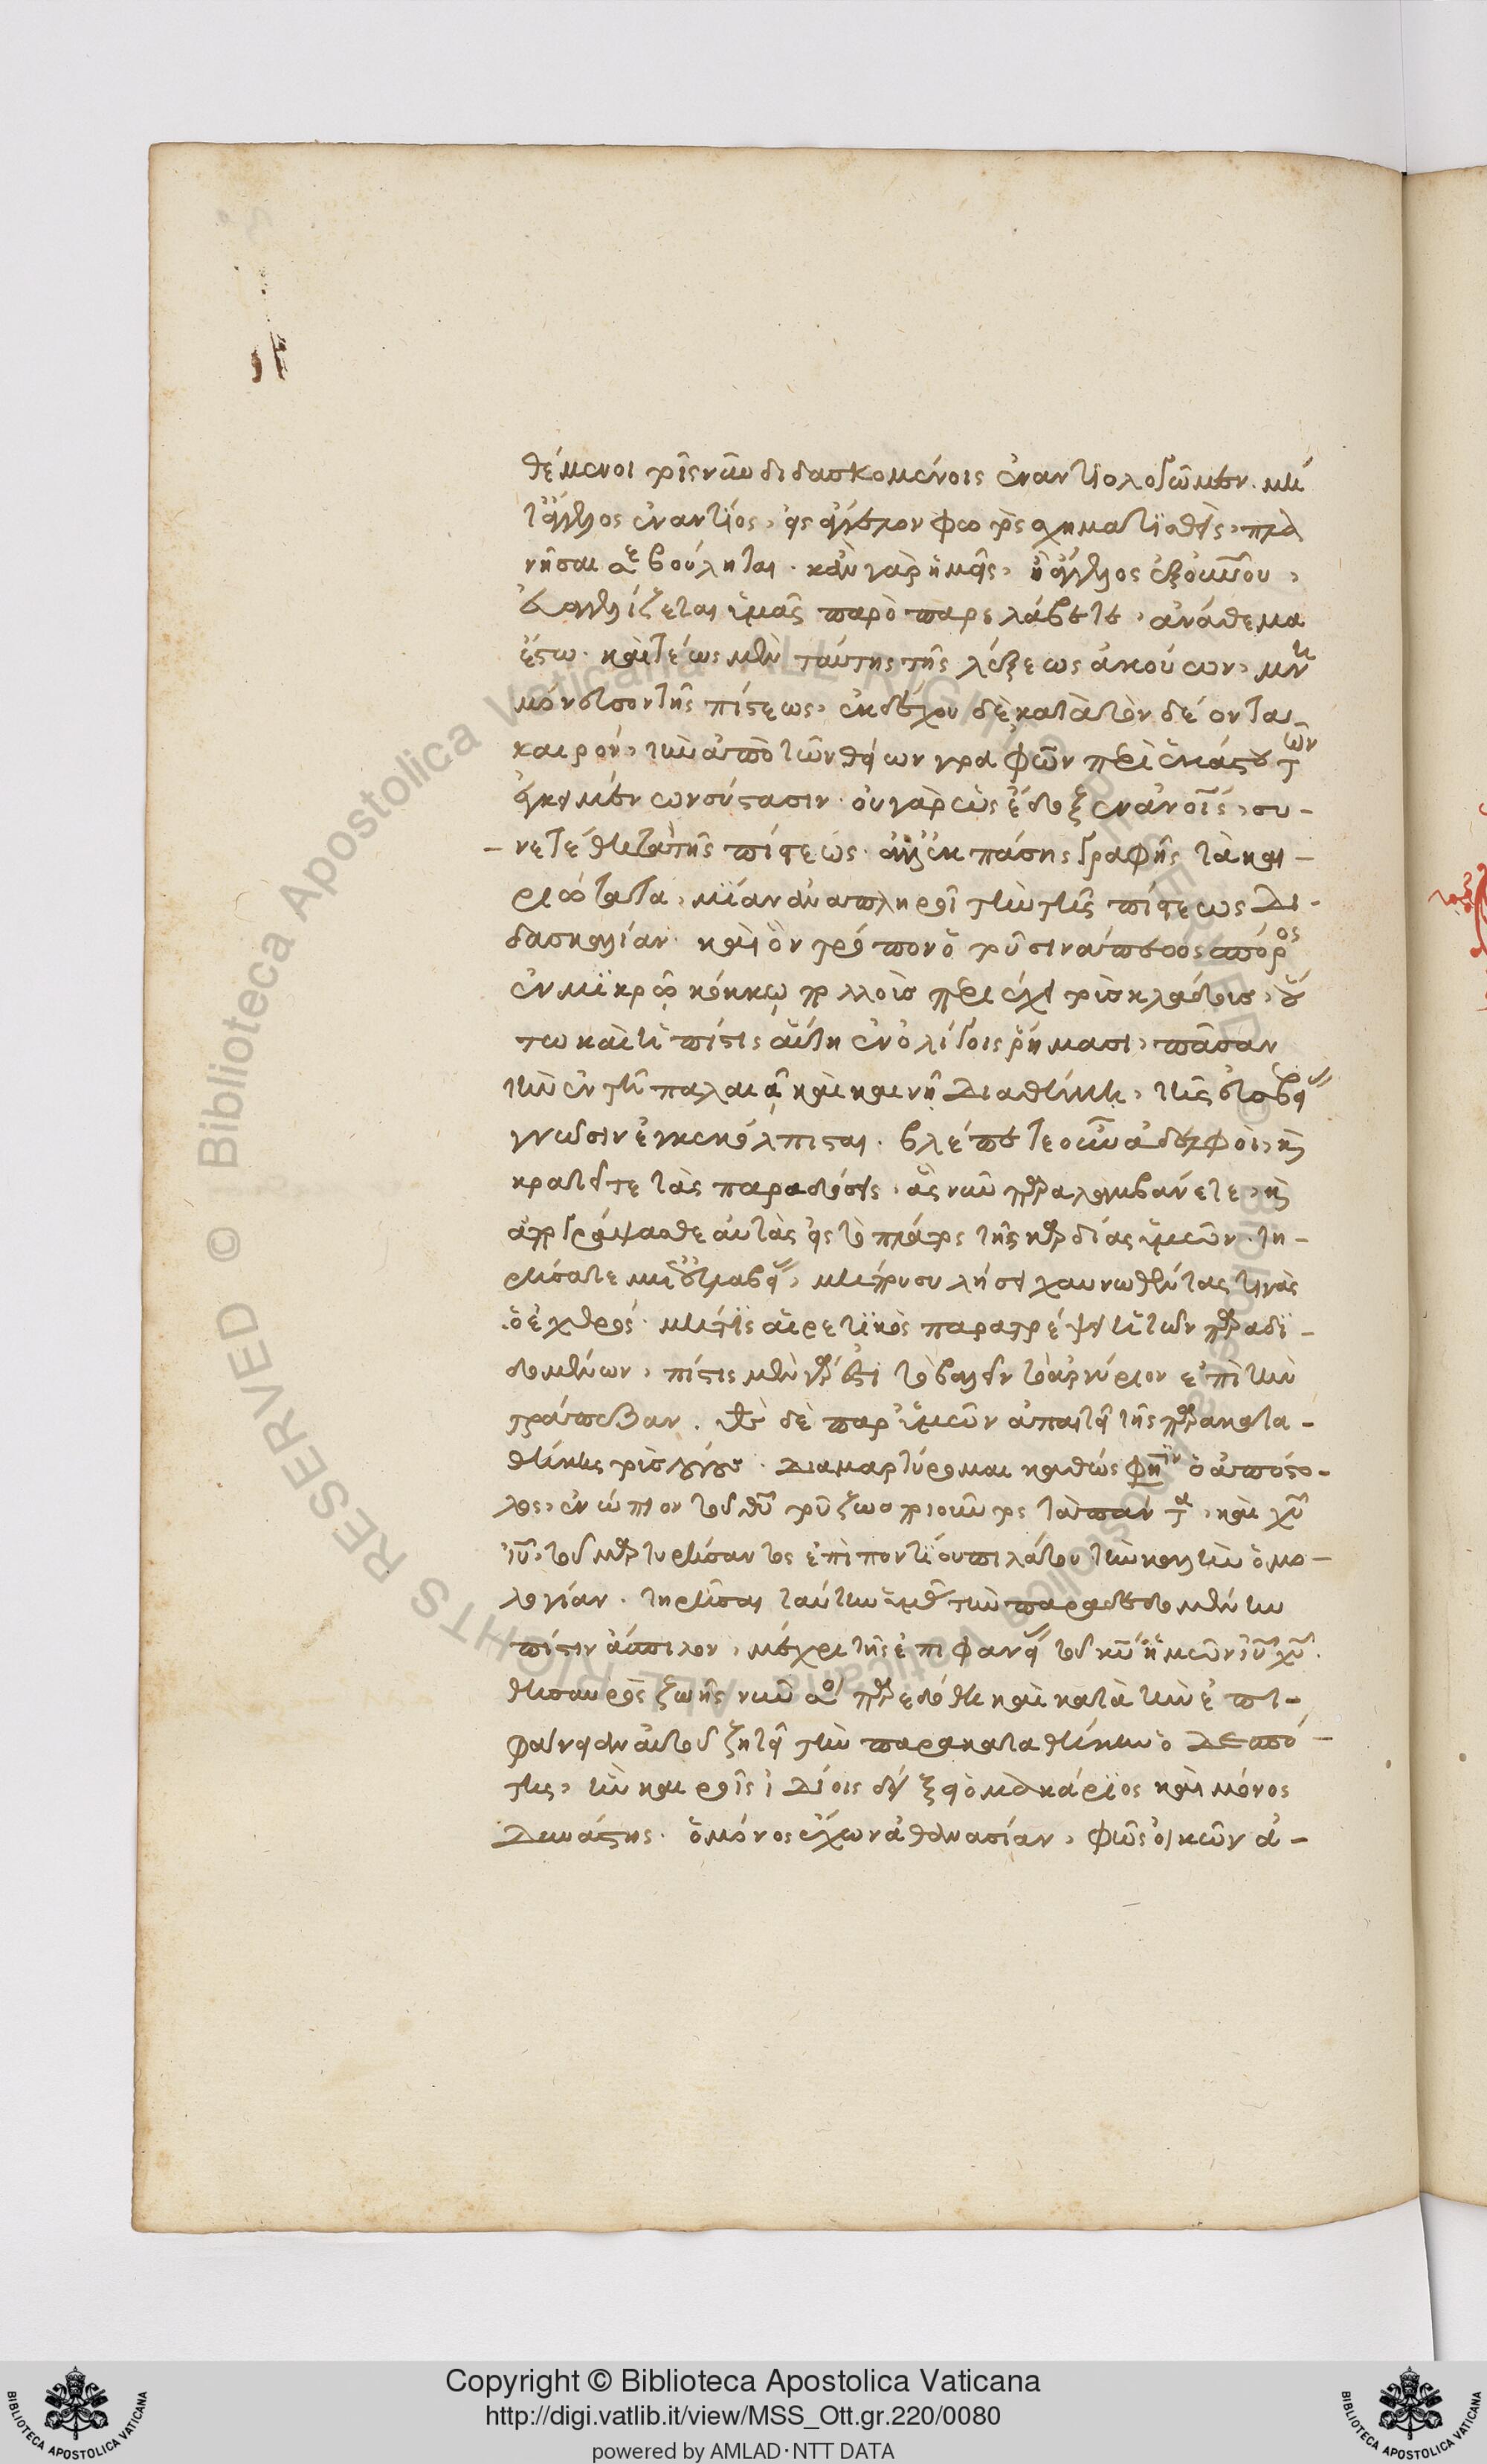 θέμενοι τοῖς νῦν διδασκομένοις ἐναντιολογῶμεν. μή
τ' ἄγγελος ἐναντίος, εἰς ἄγγελον φωτὸς σχηματισθεὶς, πλα
νῆσαι βούληται. κἂν γὰρ ἡμεῖς, ἢ ἄγγελος ἐξ οὐνοῦ,
εὐαγγελίζεται ὑμᾶς παρ' ὃ παρελάβετε, ἀνάθεμα
ἔστω. καὶ τέως μὲν ταύτης τῆς λέξεως ἀκούων, μνη
μόνευσον τῆς πίστεως, ἐκδέχου δὲ κατὰ τὸν δέοντα
καιρὸν, τὴν ἀπὸ τῶν θείων γραφῶν περὶ ἑκάστου τῶν
ἐγκειμένων σύστασιν. οὐ γὰρ ὡς ἔδοξεν ἀνοις, συ-
νετέθη τὰ τῆς πίστεως. ἀλλ' ἐκ πάσης γραφῆς τὰ και-
ριώτατα, μίαν ἀναπληροῖ τὴν τῆς πίστεως δι-
δασκαλίαν. καὶ ὃν τρόπον ὁ τοῦ σινάπεως σπόρος
ἐν μικρῷ κόκκῳ πολλοὺς περιέχει τοὺς κλάδους, οὕ
τω καὶ ἡ πίστις αὕτη ἐν ὀλίγοις ῥήμασι, πᾶσαν
τὴν ἐν τῇ παλαιᾷ καὶ καινῇ διαθήκῃ, τῆς εὐσεβείας
γνῶσιν ἐγκεκόλπισται. βλέπετε οὖν ἀδελφοὶ, καὶ
κρατεῖτε τὰς παραδόσεις, ἃς νῦν παραλαμβάνετε, καὶ
ἀπογράψασθε αὐτὰς εἰς τὸ πλάτος τῆς καρδίας ὑμῶν. τη-
ρήσατε μετ' εὐλαβείας, μήπου συλήσει χαυνωθέντας τινὰς
ὁ ἐχθρός. μή τις αἱρετικὸς παρατρέψῃ τι τῶν παραδι-
δομένων, πίστις μὲν γάρ ἐστι τὸ βαλεῖν τὸ ἀργύριον ἐπὶ τὴν
τράπεζαν. θς δὲ παρ' ὑμῶν ἀπαιτεῖ τῆς παρακατα-
θήκης τοὺς λόγους. διαμαρτύρομαι καθώς φησιν ὁ ἀπόστο-
λος, ἐνώπιον τοῦ θυ τοῦ ζωοποιοῦντος τὰ πάντα, καὶ χυ
ιυ, τοῦ μαρτυρήσαντος ἐπὶ ποντίου πιλάτου τὴν καλὴν ὁμο-
λογίαν. τηρῆσαι ταύτην ὑμᾶς τὴν παραδεδομένην
πίστιν ἄσπιλον, μέχρι τῆς ἐπιφανείας τοῦ κυ ἡμῶν ιυ χυ.
θησαυρὸς ζωῆς νῦν σοι παρεδόθη καὶ κατὰ τὴν ἐπι-
φάνειαν αὐτοῦ ζητεῖ τὴν παρακαταθήκην ὁ δεσπό-
της, ἣν καιροῖς ἰδίοις δείξει ὁ μακάριος καὶ μόνος
δυνάστης. ὁ μόνος ἔχων ἀθανασίαν, φῶς οἰκῶν ἀ-
Copyright © Biblioteca Apostolica Vaticana
http://digi.vatlib.it/view/MSS_Ott.gr.220/0080
powered by AMLAD·NTT DATA